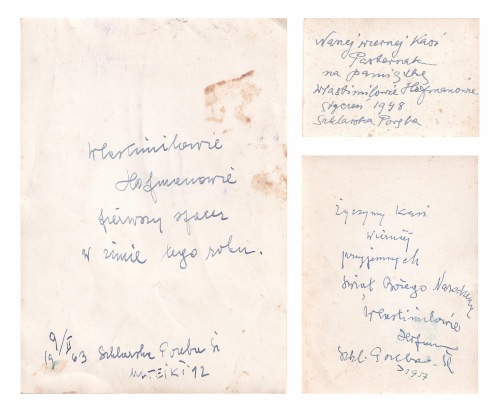 Wlastimilowie
Hofmanowie
pierwszy spacer
w zimie tego roku.
19 9/II 63 Szklarska Poręba Śl
MATEJKI 12
Naszej wiernej Kasi
Pasternak
na pamiątkę
Wlastimilowie Hofmanowie
styczeń 1948
Szklarska Poręba
Życzymy Kasi
wiernej
przyjemnych
Świąt Bożego Narodzenia
Wlastimilowie
Hofman
Szkl. Poręba - Śl
1957